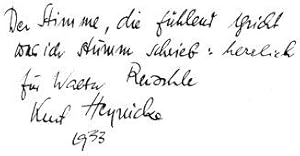 Der Stimme, die fühlend spricht
was ich stumm schrieb : herzlich
für Walter
Kurt Heynicke
1933